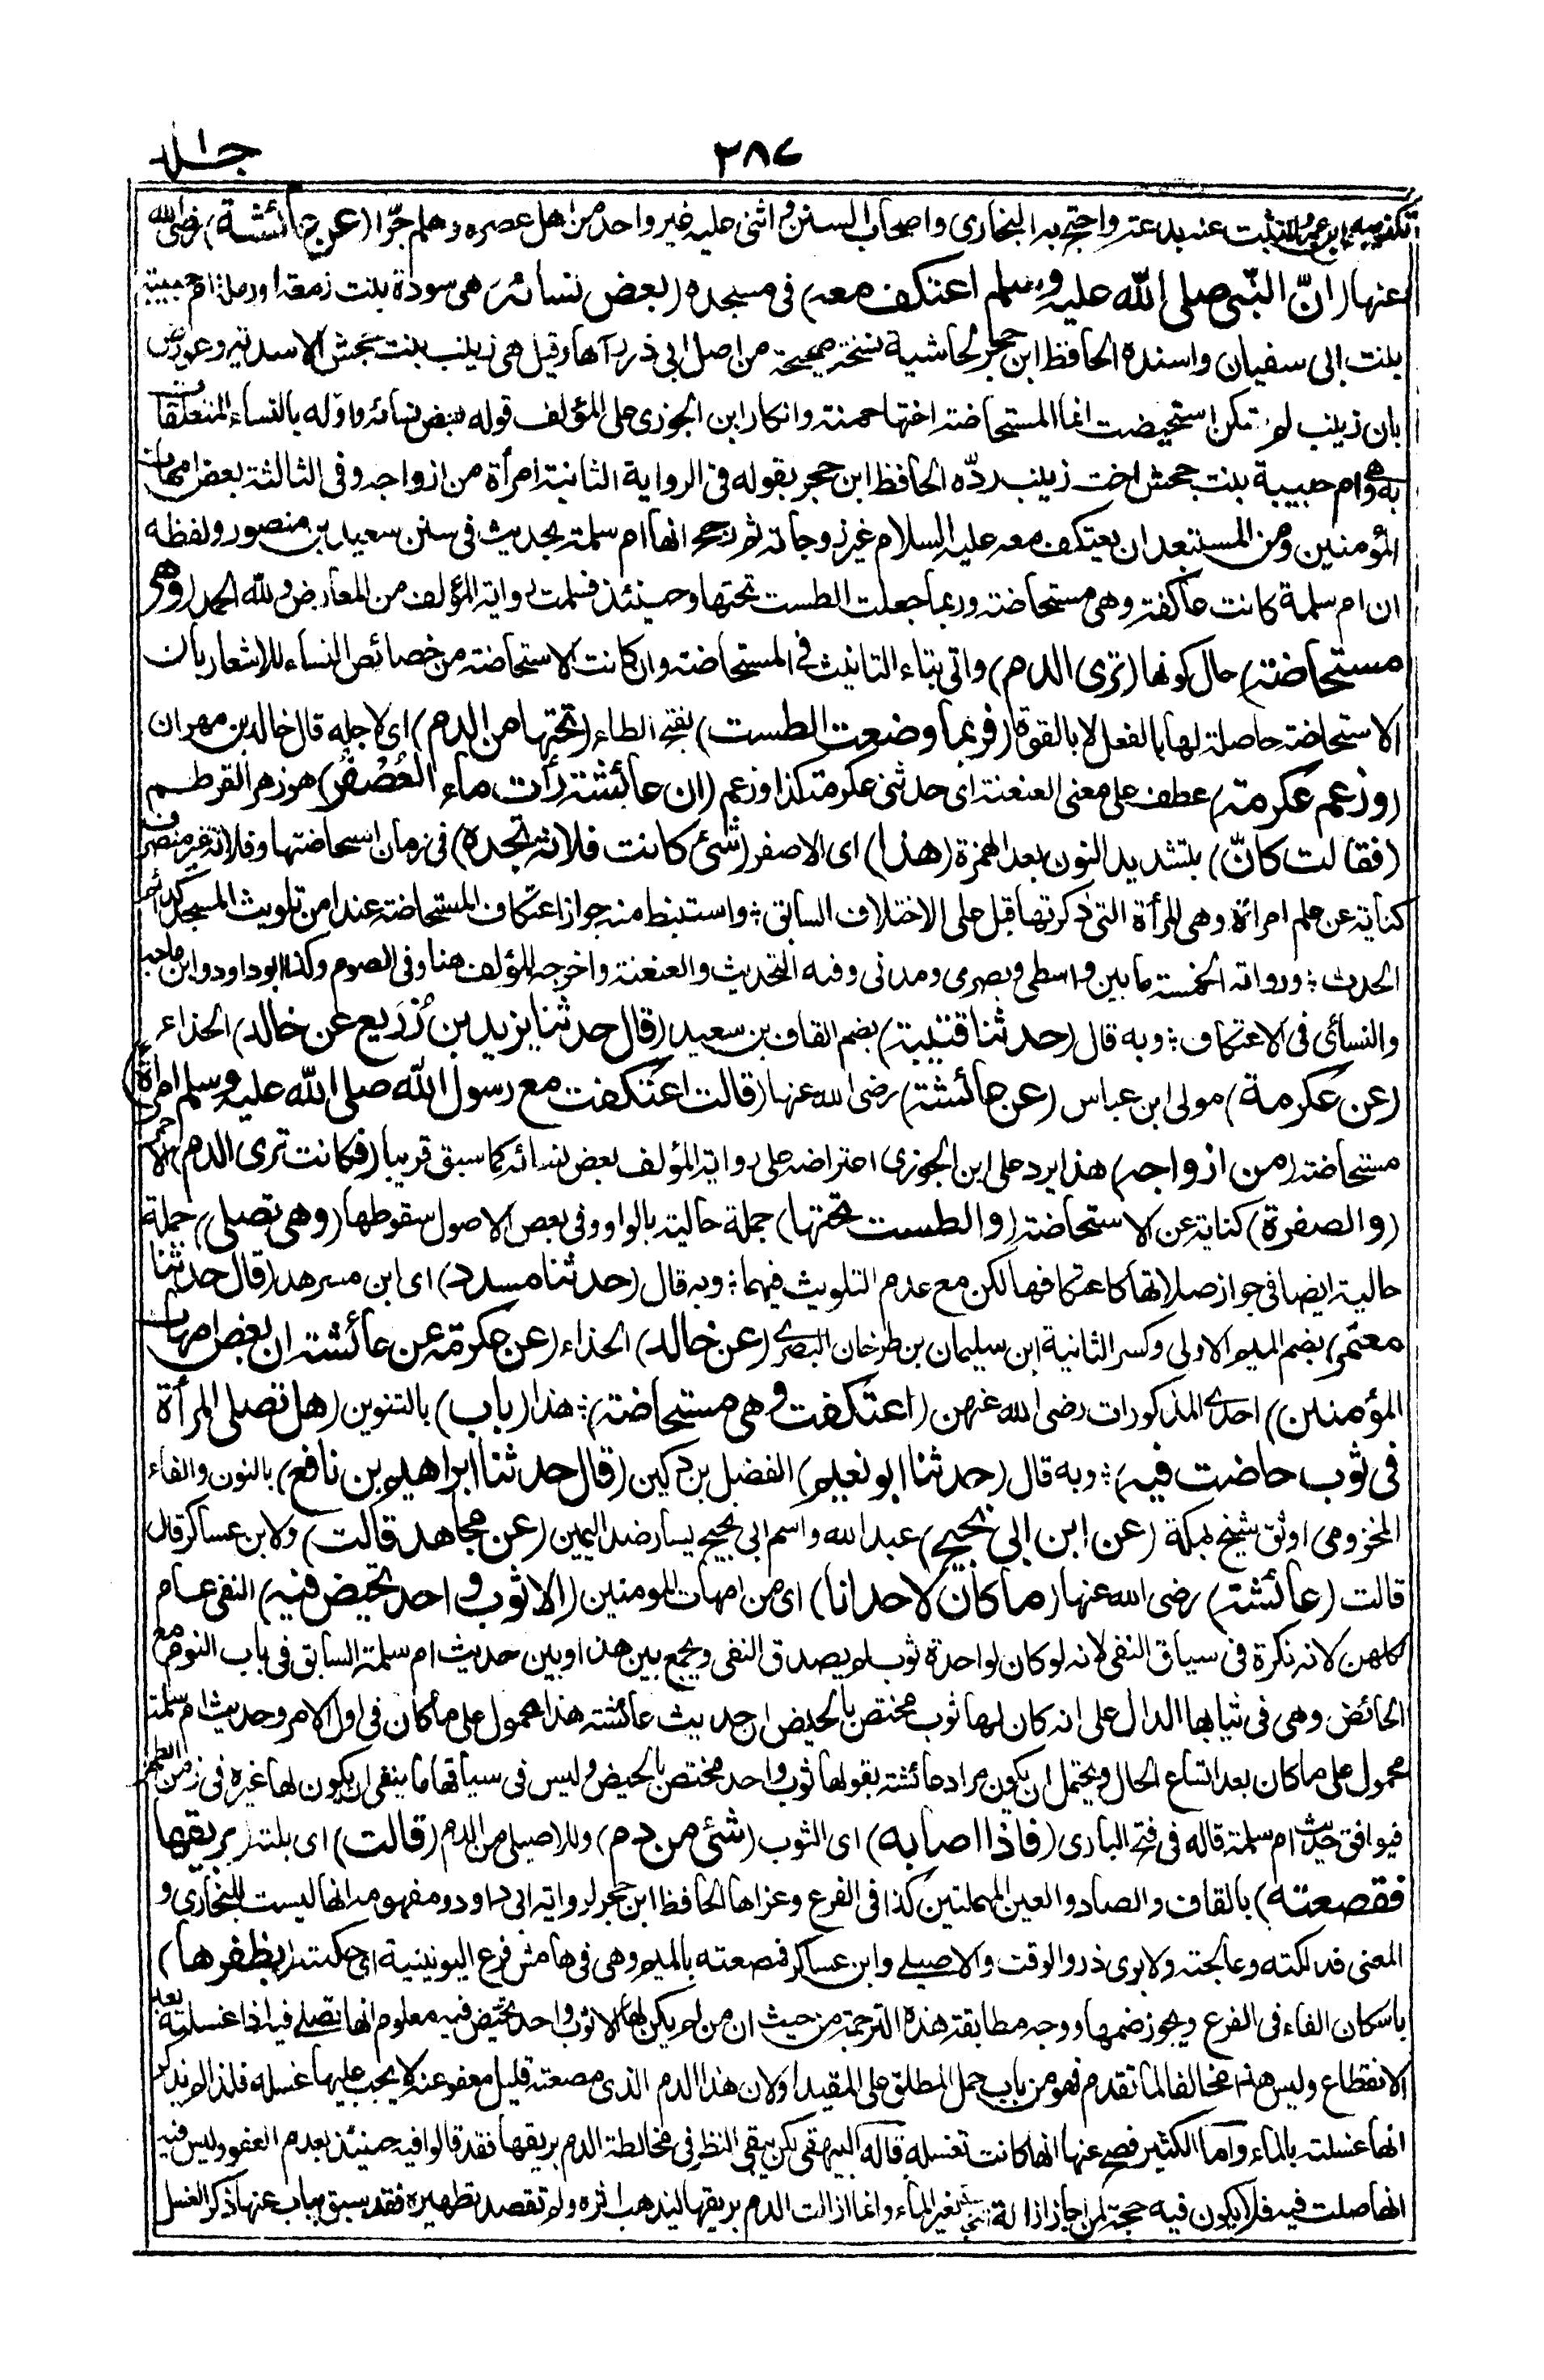 ٣٨٧ جلد ١
تكذيبه ابن عمر ولا تثبت عنه بدعة واحتج به البخارى واصحاب السنن واثنى عليه غير واحد من اهل عصره وهلم جرّا (عن عائشة) رضى الله
عنها (انّ النّبى صلى الله عليه وسلم اعتكف معه) فى مسجده (بعض نسائه) هى سودة بنت زمعة او رملة ام حبيبة
بنت ابى سفيان واسنده الحافظ ابن حجر لحاشية نسخة صحيحة من اصل ابى ذر رآها وقيل هى زينب بنت جحش الاسدية وعورض
بان زينب لم تكن استحيضت انما المستحاضة اختها حمنة وانكار ابن الجوزى على المؤلف قوله بعض نسائه واوّله بالنساء المتعلقات
به وهى ام حبيبة بنت جحش اخت زينب ردّه الحافظ ابن حجر بقوله فى الرواية الثانية امرأة من ازواجه وفى الثالثة بعض امهات
المؤمنين ومن المستبعد ان يعتكف معه عليه السلام غير زوجاته ثم رجح انها ام سلمة بحديث فى سنن سعيد بن منصور ولفظه
ان ام سلمة كانت عاكفة وهى مستحاضة وربما جعلت الطست تحتها وحينئذ فسلمت رواية المؤلف من المعارض ولله الحمد (وهى
مستحاضة) حال كونها (ترى الدم) واتى بتاء التانيث فى المستحاضة وان كانت الاستحاضة من خصائص النساء للاشعار بان
الاستحاضة حاصلة لها بالفعل لا بالقوة (فربما وضعت الطست) بفتح الطاء (تحتها من الدم) اى لاجله قال خالد بن مهران
(وزعم عكرمة) عطف على معنى العنعنة اى حدثنى عكرمة كذا وزعم (ان عائشة رأت ماء العُصْفُر) هو زهر القرطم
(فقالت كانّ) بتشديد النون بعد الهمزة (هذا) اى الاصفر (شئ كانت فلانة تجده) فى زمان استحاضتها وفلانة غير منصرف
كناية عن علم امرأة وهى المرأة التى ذكرتها قبل على الاختلاف السابق ؛ واستنبط منه جواز اعتكاف المستحاضة عند امن تلويث المسجد كدائم
الحدث ؛ ورواته الخمسة ما بين واسطى وبصرى ومدنى وفيه التحديث والعنعنة واخرجه المؤلف هنا وفى الصوم وكذا ابوداود وابن ماجه
والنسائى فى الاعتكاف ؛ وبه قال (حدثنا قتيبة) بضم القاف بن سعيد (قال حدثنا يزيد بن زُرَيع عن خالد) الحذاء
(عن عكرمة) مولى ابن عباس (عن عائشة) رضى الله عنها (قالت اعتكفت مع رسول الله صلى الله عليه وسلم امرأة)
مستحاضة (من ازواجه) هذا يرد على ابن الجوزى اعتراضه على رواية المؤلف بعض نسائه كما سبق قريبا (فكانت ترى الدم) الاحمر
(والصفرة) كناية عن الاستحاضة (والطست تحتها) جملة حالية بالواو وفى بعض الاصول سقوطها (وهى تصلى) جملة
حالية ايضا فى جواز صلاتها كاعتكافها لكن مع عدم التلويث فيهما ؛ وبه قال (حدثنا مسدد) اى ابن مسرهد (قال حدثنا
معتمر) بضم الميم الاولى وكسر الثانية ابن سليمان بن طرخان البصرى (عن خالد) الحذاء (عن عكرمة عن عائشة ان بعض امهات
المؤمنين) احدى المذكورات رضى الله عنهن (اعتكفت وهى مستحاضة) ؛ هذا (باب) بالتنوين (هل تصلى المرأة
فى ثوب حاضت فيه) ؛ وبه قال (حدثنا ابو نعيم) الفضل بن دكين (قال حدثنا ابراهيم بن نافع) بالنون والفاء
المخزومى اوثق شيخ بمكة (عن ابن ابى نجيح) عبد الله واسم ابى نجيح يسار ضد اليمين (عن مجاهد قالت) ولابن عساكر قال
قالت (عائشة) رضى الله عنها (ما كان لاحدانا) اى من امهات المومنين (الا ثوب واحد تحيض فيه) النفى عام
كلهن لانه نكرة فى سياق النفى لانه لو كان لواحدة ثوب لم يصدق النفى ويجمع بين هذا وبين حديث ام سلمة السابق فى باب النوم مع
الحائض وهى فى ثيابها الدال على انه كان لها ثوب مختص بالحيض ان حديث عائشة هذا محمول على ما كان فى اول الامر وحديث ام سلمة
محمول على ما كان بعد اتساع الحال ويحتمل ان يكون مراد عائشة بقولها ثوب واحد مختص بالحيض وليس فى سياقها ما ينفى ان يكون لها غيره فى زمن الطهر
فيوافق حديث ام سلمة قاله فى فتح البارى (فاذا اصابه) اى الثوب (شئ من دم) وللاصيلى من الدم (قالت) اى بلته (بريقها
فقصعته) بالقاف والصاد والعين المهملتين كذا فى الفرع وعزاها الحافظ ابن حجر لرواية ابى داود ومفهومه انها ليست للبخارى و
المعنى فدلكته وعالجته ولابوى ذر والوقت والاصيلى وابن عساكر فمصعته بالميم وهى فى هامش فرع اليونينية اى حكته (بظفرها)
باسكان الفاء فى الفرع ويجوز ضمها ووجه مطابقة هذه الترجمة من حيث ان من لم يكن لها الا ثوب واحد تحيض فيه معلوم انها تصلى فيه اذا غسلته بعد
الانقطاع وليس هذا مخالفا لما تقدم فهو من باب حمل المطلق على المقيد او لان هذا الدم الذى مصعته قليل معفو عنه لا يجب عليها غسله فلذا لم يذكر
انها غسلته بالماء واما الكثير فصح عنها انها كانت تغسله قاله البيهقى لكن يبقى النظر فى مخالطة الدم بريقها فقد قالوا فيه حينئذ بعدم العفو وليس فيه
انها صلت فيه فلا يكون فيه حجة لمن اجاز ازالة النجاسة بغير الماء وانما ازالت الدم بريقها ليذهب اثره ولم تقصد تطهيره فقد سبق بباب عنها ذكر الغسل